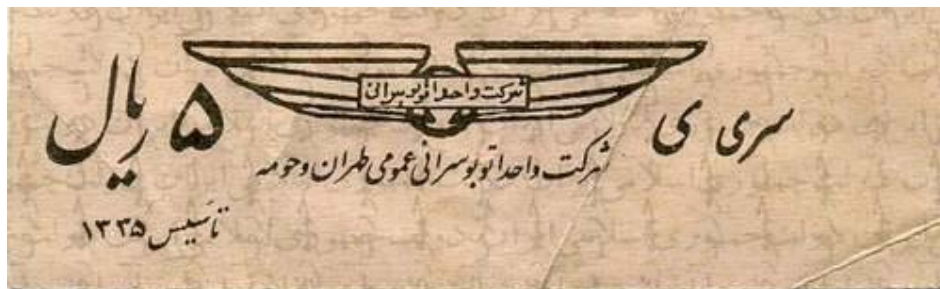 شرکت واحد اتوبوسرانی
سری ی
۵ ریال
شرکت واحد اتوبوسرانی عمومی طهران و حومه
تأسیس ۱۳۳۵